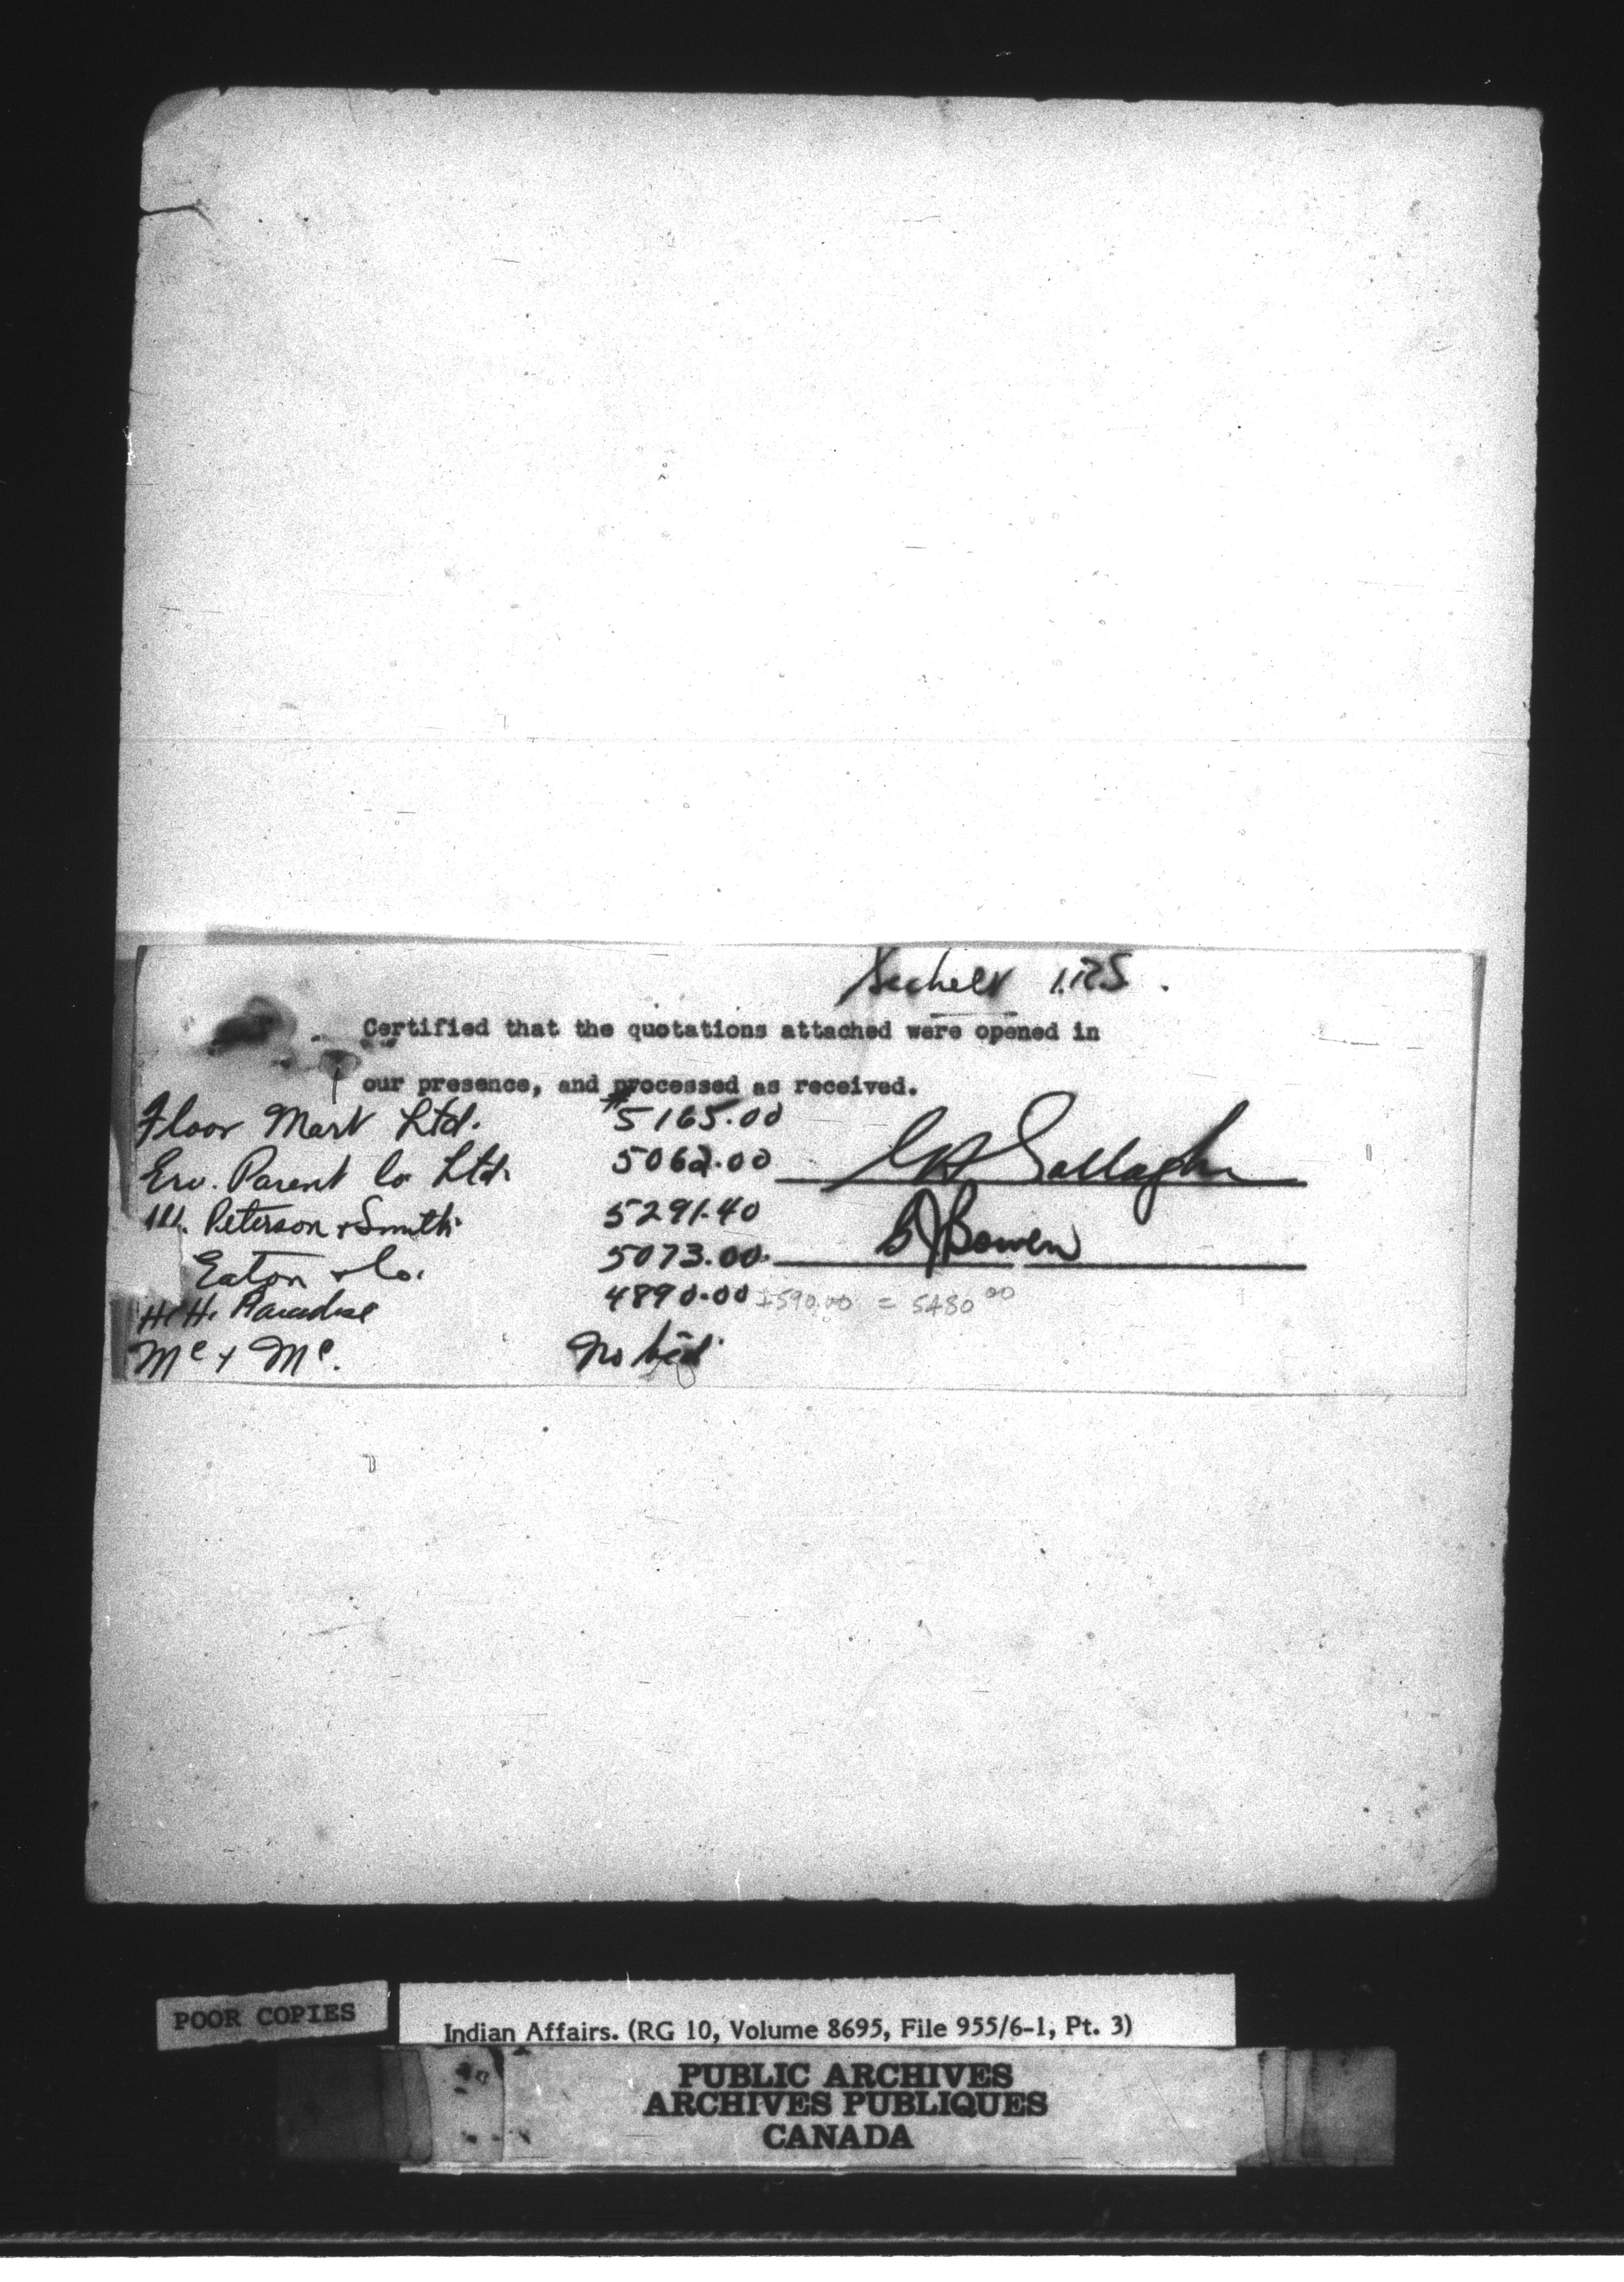 Sechelt I.R.S.
Certified that the quotations attached were opened in
our presence, and processed as received.
Floor Mart Ltd. $5165.00
Erv. Parent Co Ltd. 5062.00 Gallagher
Peterson & Smith 5291.40 BJ Bowen
Eaton & Co. 5073.00
H.H. Paradise 4890.00 + 590.00 = 5480 00
Mc & Mc. No bid
POOR COPIES
Indian Affairs. (RG 10, Volume 8695, File 955/6-1, Pt. 3)
PUBLIC ARCHIVES
ARCHIVES PUBLIQUES
CANADA